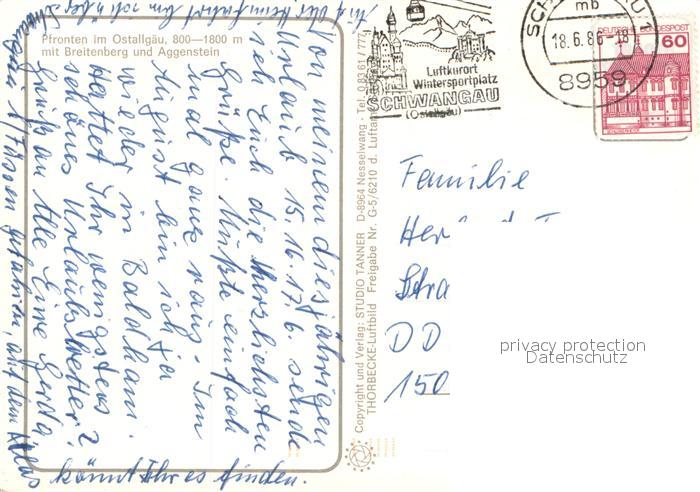 Pfronten im Ostallgäu, 800—1800 m
mit Breitenberg und Aggenstein
Von meinem diesjährigen
Urlaub 15. 16. 17. 6. sende
ich Euch die herzlichsten
Grüße. Mußte einfach
mal ganz raus. Im
August bin ich ja
wieder in Baldham.
Hattet Ihr wenigstens
schönes Urlaubswetter?
Gruß an Alle Eure Gerda
Füssen gefahren, auf dem Atlas
könnt Ihr es finden.
Copyright und Verlag: STUDIO TANNER D-8964 Nesselwang · Tel. 0 83 61 / 777
THORBECKE-Luftbild Freigabe Nr. G-5/6210 d. Luftam
Luftkurort
Wintersportplatz
SCHWANGAU
(Ostallgäu)
SCHWANGAU 1
mb
18.6.86-18
8959
DEUTSCHE BUNDESPOST
60
Familie
Her
Stra
DD
150
privacy protection
Datenschutz